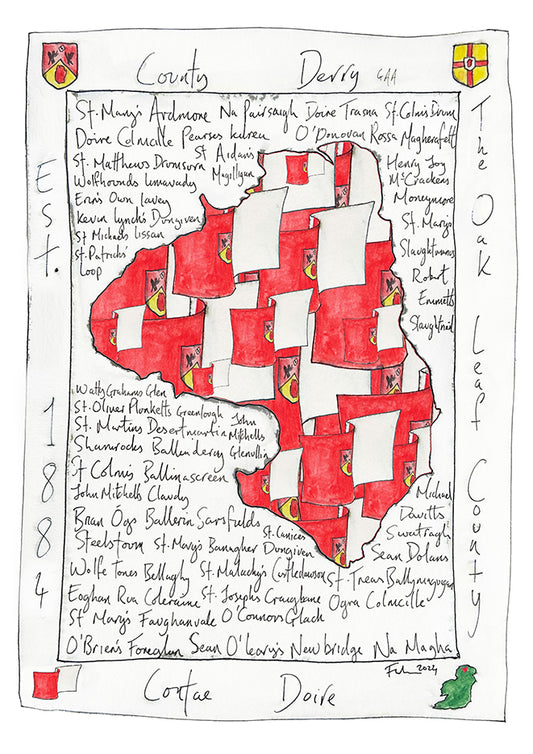 County Derry GAA
Est. 1884
The Oak Leaf County
St. Mary's Ardmore Na Piarsaigh Doire Trasna St. Colm's Drum
Doire Colmcille Pearses Kilrea O'Donovan Rossa Magherafelt
St. Matthews Drumsurn St Aidan's
Magilligan
Wolfhounds Limavady
Erin's Own Lavey
Kevin Lynch's Dungiven
St Michaels Lissan
St. Patricks'
Loop
Henry Joy
McCrackens
Moneymore
St. Marys
Slaughtmanus
Robert
Emmetts
Slaughtneil
Watty Grahams Glen
St. Oliver Plunketts Greenlough John
St. Martins Desertmartin Mitchells
Shamrocks Ballinderry Glenullin
St Colm's Ballinascreen
John Mitchells Claudy
Brian Ógs Ballerin Sarsfields
Steelstown St. Mary's Banagher St. Canices
Dungiven
Wolfe Tones Bellaghy St. Malachy's Castledawson St. Treas Ballymaguigan
Eoghan Rua Coleraine St. Josephs Craigbane Ogra Colmcille
St Mary's Faughanvale O'Connors Glack
O'Brien's Foreglen Sean O'Leary's Newbridge Na Magha
Michael
Davitts
Swatragh
Sean Dolans
2024
Contae Doire